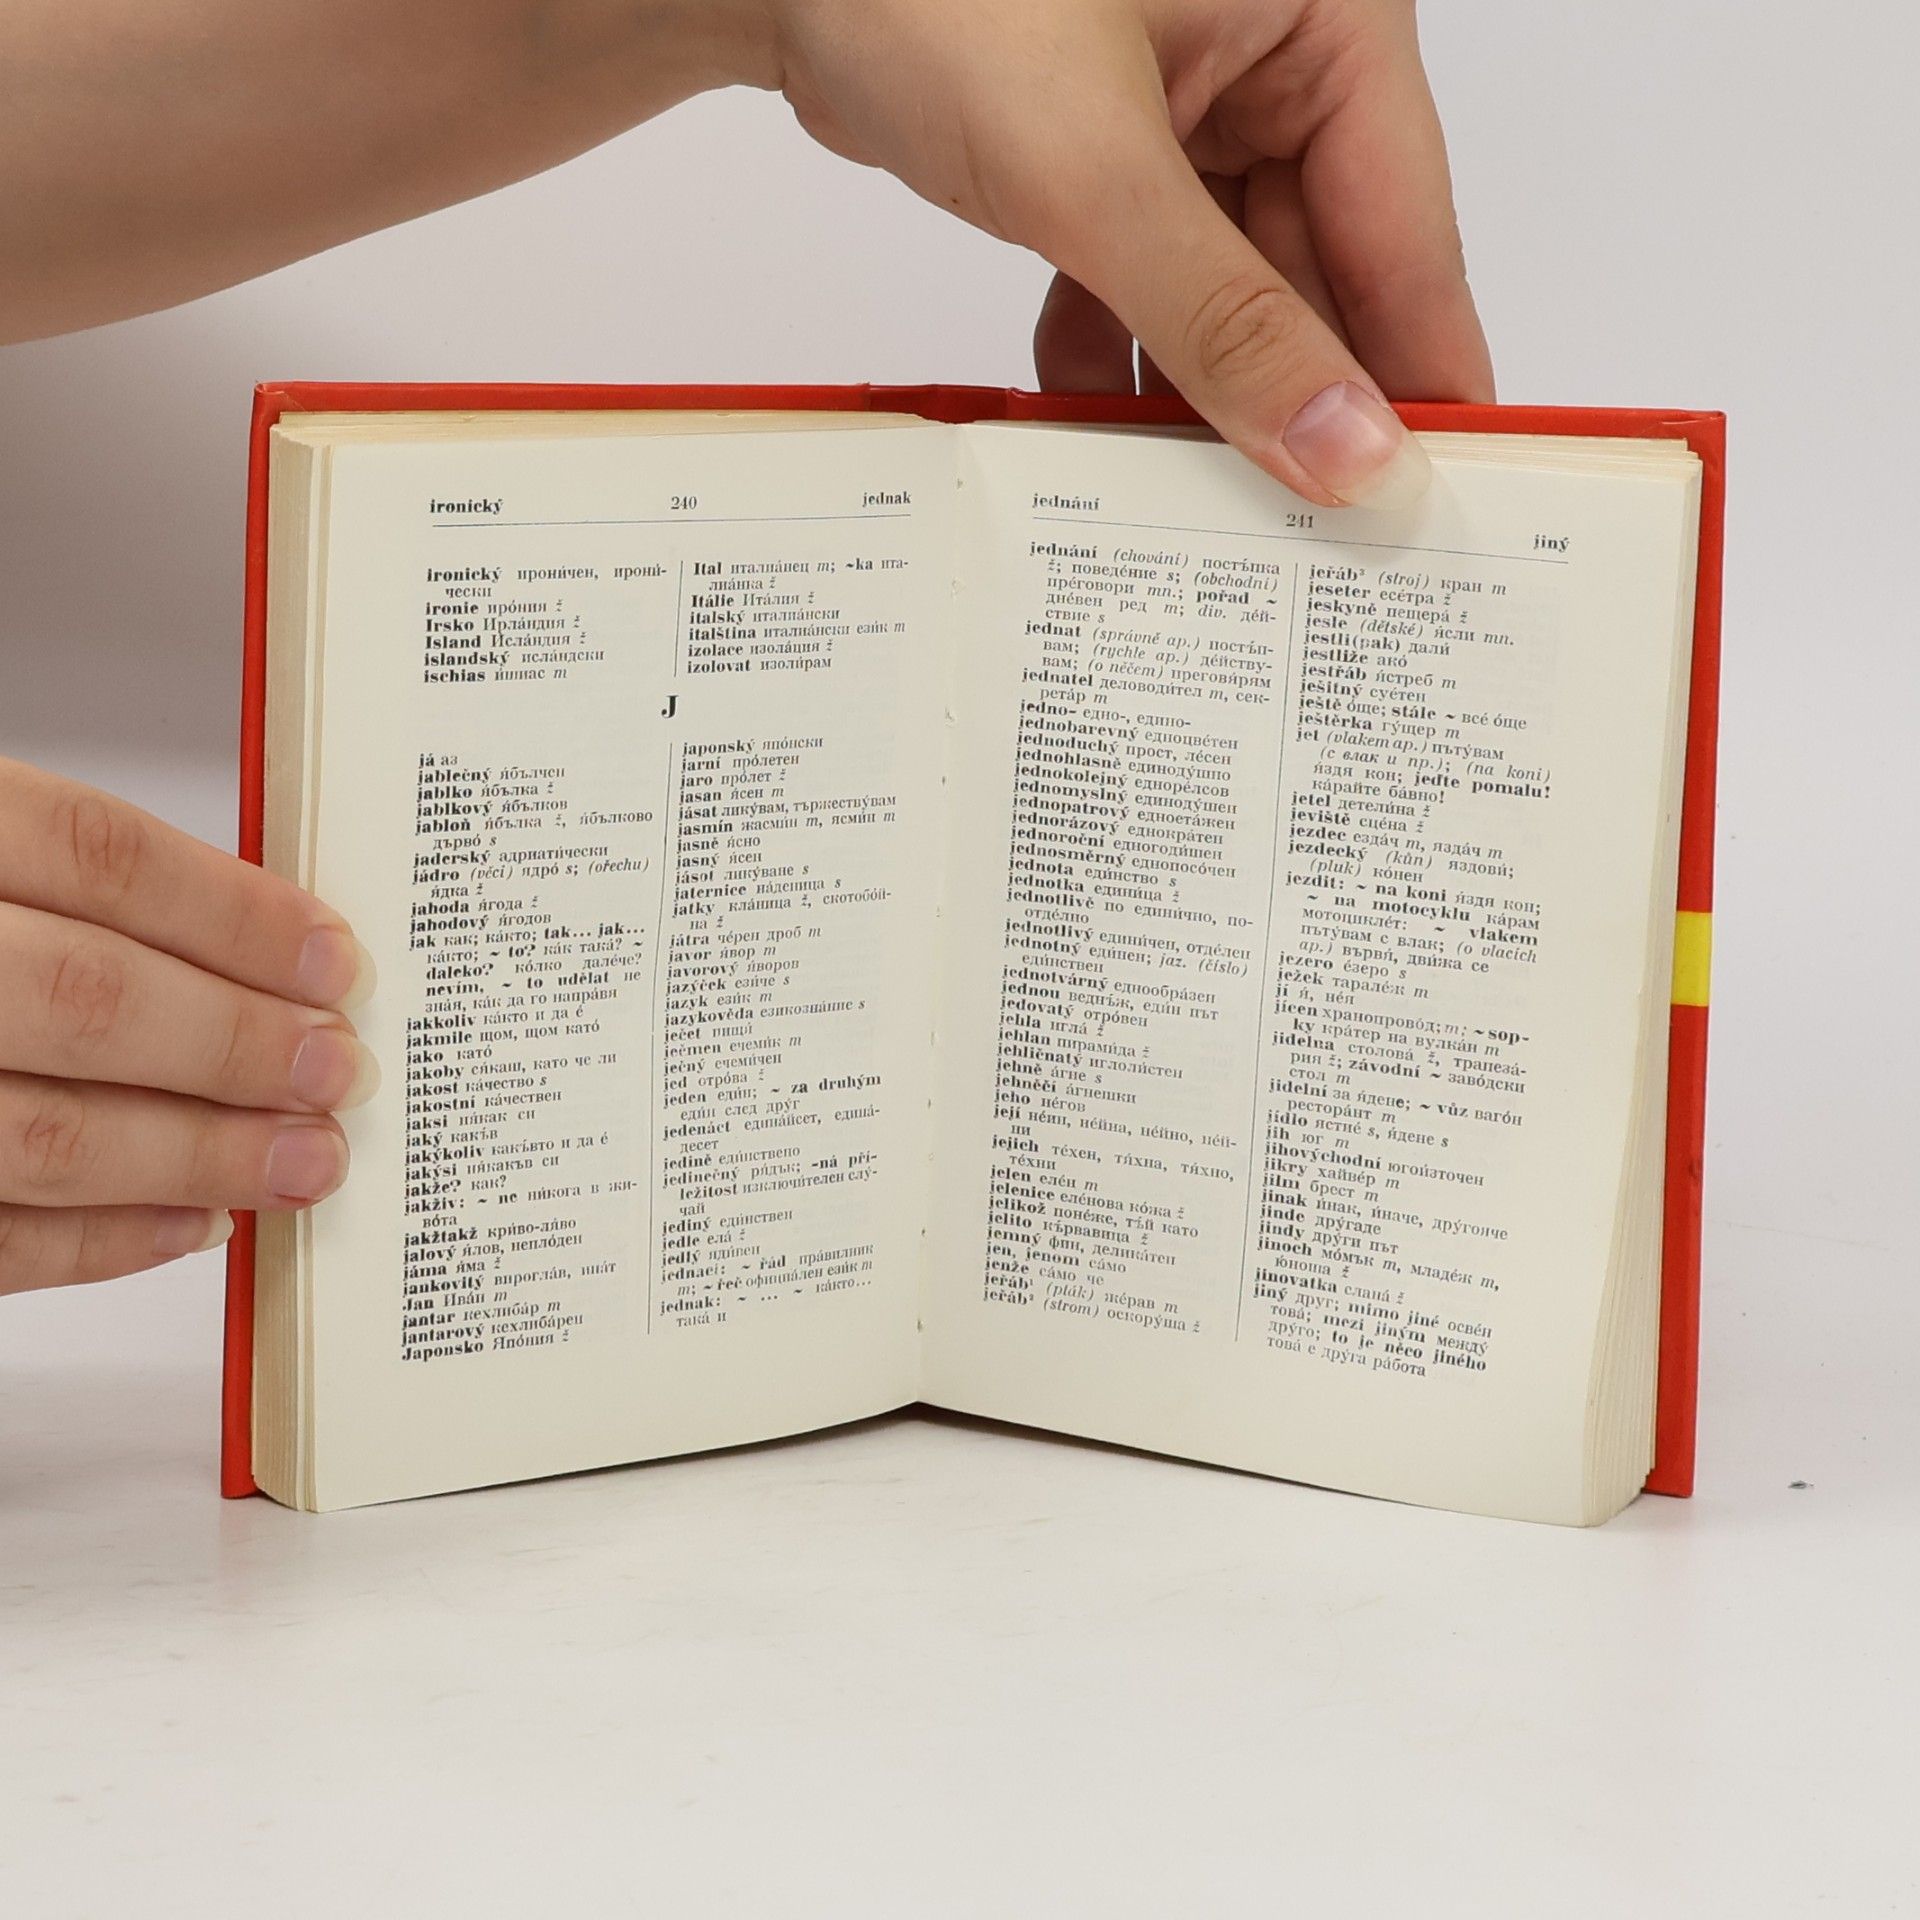 ironický 240 jednak
ironický ирони́чен, ирони́-
чески
ironie иро́ния ž
Irsko Ирла́ндия ž
Island Исла́ндия ž
islandský исла́ндски
ischias и́шиас m
Ital италиа́нец m; ~ka ита-
лиа́нка ž
Itálie Ита́лия ž
italský италиа́нски
italština италиа́нски ези́к m
izolace изола́ция ž
izolovat изоли́рам
J
já аз
jablečný я́бълчен
jablko я́бълка ž
jablkový я́бълков
jabloň я́бълка ž, я́бълково
дърво́ s
jaderský адриати́чески
jádro (věci) ядро́ s; (ořechu)
я́дка ž
jahoda я́года ž
jahodový я́годов
jak как; ка́кто; tak... jak...
ка́кто; ~ to? ка́к така́? ~
daleko? ко́лко дале́че?
nevím, ~ to udělat не
зна́я, ка́к да го напра́вя
jakkoliv ка́кто и да е́
jakmile щом, щом като́
jako като́
jakoby ся́каш, като че ли
jakost ка́чество s
jakostní ка́чествен
jaksi ня́как си
jaký какъ́в
jakýkoliv какъ́вто и да е́
jakýsi ня́какъв си
jakže? как?
jakživ: ~ ne ни́кога в жи-
во́та
jakžtakž кри́во-ля́во
jalový я́лов, непло́ден
jáma я́ма ž
jankovitý вирогла́в, ина́т
Jan Ива́н m
jantar кехлиба́р m
jantarový кехлиба́рен
Japonsko Япо́ния ž
japonský япо́нски
jarní про́летен
jaro про́лет ž
jasan я́сен m
jásat лику́вам, тържеству́вам
jasmín жасми́н m, ясми́н m
jasně я́сно
jasný я́сен
jásot лику́ване s
jaternice на́деница s
jatky кла́ница ž, скотобо́й-
на ž
játra че́рен дроб m
javor я́вор m
javorový я́воров
jazýček ези́че s
jazyk ези́к m
jazykověda езикозна́ние s
ječet пищи́
ječmen ечеми́к m
ječný ечеми́чен
jed отро́ва ž
jeden еди́н; ~ za druhým
еди́н след дру́г
jedenáct едина́йсет, едина́-
десет
jedině еди́нствено
jedinečný ря́дък; ~ná pří-
ležitost изключи́телен слу́-
чай
jediný еди́нствен
jedle ела́ ž
jedlý яди́вен
jednací: ~ řád пра́вилник
m; ~ řeč официа́лен ези́к m
jednak: ~ ... ~ ка́кто...
така́ и
jednání 241 jiný
jednání (chování) постъ́пка
ž; поведе́ние s; (obchodní)
пре́говори mn.; pořad ~
дне́вен ред m; div. де́й-
ствие s
jednat (správně ap.) постъ́п-
вам; (rychle ap.) де́йству-
вам; (o něčem) прегова́рям
jednatel деловоди́тел m, сек-
рета́р m
jedno- едно-, едино-
jednobarevný едноцве́тен
jednoduchý прост, ле́сен
jednohlasně единоду́шно
jednokolejný едноре́лсов
jednomyslný единоду́шен
jednopatrový едноета́жен
jednorázový еднокра́тен
jednoroční едногоди́шен
jednosměrný еднопосо́чен
jednota еди́нство s
jednotka едини́ца ž
jednotlivě по едини́чно, по-
отде́лно
jednotlivý едини́чен, отде́лен
jednotný еди́нен; jaz. (číslo)
еди́нствен
jednotvárný еднообра́зен
jednou ведн́ъж, еди́н път
jedovatý отро́вен
jehla игла́ ž
jehlan пирами́да ž
jehličnatý иглоли́стен
jehně а́гне s
jehněčí а́гнешки
jeho не́гов
její не́ин, не́йна, не́йно, не́й-
ни
jejich те́хен, тя́хна, тя́хно,
те́хни
jelen еле́н m
jelenice еле́нова ко́жа ž
jelikož поне́же, тъ́й като
jelito къ́рвавица ž
jemný фин, делика́тен
jen, jenom са́мо
jenže са́мо че
jeřáb¹ (pták) же́рав m
jeřáb² (strom) оскору́ша ž
jeřáb³ (stroj) кран m
jeseter есе́тра ž
jeskyně пещера́ ž
jesle (dětské) я́сли mn.
jestli(pak) дали́
jestliže ако́
jestřáb я́стреб m
ješitný суе́тен
ještě о́ще; stále ~ все́ о́ще
ještěrka гу́щер m
jet (vlakem ap.) пъту́вам
(с влак и пр.); (na koni)
я́здя кон; jeďte pomalu!
ка́райте ба́вно!
jetel детели́на ž
jeviště сце́на ž
jezdec езда́ч m, язда́ч m
jezdecký (kůn) яздови́;
(pluk) ко́нен
jezdit: ~ na koni я́здя кон;
~ na motocyklu ка́рам
мотоцикле́т: ~ vlakem
пъту́вам с влак; (o vlacích
ap.) върви́, дви́жа се
jezero е́зеро s
ježek тарале́ж m
jí я́, не́я
jícen хранопрово́д; m; ~ sop-
ky кра́тер на вулка́н m
jídelna столова́ ž, трапеза́-
рия ž; závodní ~ заво́дски
стол m
jídelní за я́дене; ~ vůz ваго́н
рестора́нт m
jídlo ястие́ s, я́дене s
jih юг m
jihovýchodní югои́зточен
jikry хайве́р m
jilm брест m
jinak и́нак, и́наче, дру́гояче
jinde дру́гаде
jindy дру́ги път
jinoch мо́мък m, младе́ж m,
ю́ноша ž
jinovatka слана́ ž
jiný друг; mimo jiné осве́н
това́; mezi jiným между́
дру́го; to je něco jiného
това́ е дру́га ра́бота